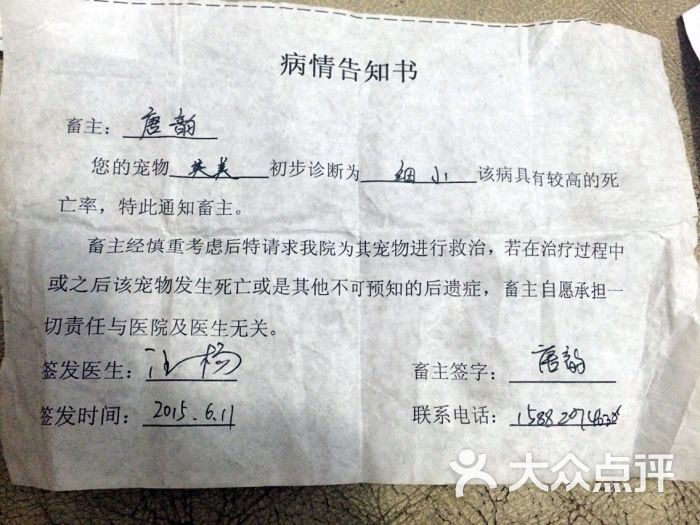 病情告知书
畜主：唐韵
您的宠物 英美 初步诊断为 细小 该病具有较高的死
亡率，特此通知畜主。
畜主经慎重考虑后特请求我院为其宠物进行救治，若在治疗过程中
或之后该宠物发生死亡或是其他不可预知的后遗症，畜主自愿承担一
切责任与医院及医生无关。
签发医生：
畜主签字：唐韵
签发时间：2015.6.11
联系电话：
大众点评